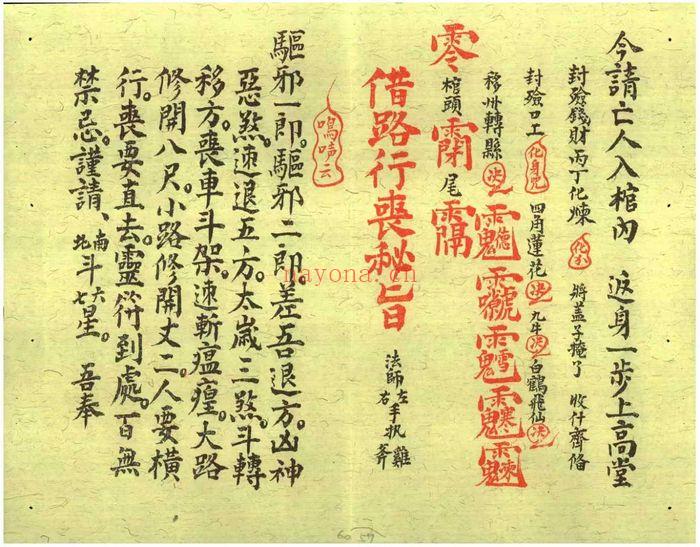 今請亡人入棺內 返身一步上高堂
封殮錢財丙丁化煉 將蓋子掩了 收什齊備
封殮口工 化身咒 四角蓮花 决 九牛 决 白鶴飛仙 决
移州轉縣 决
零 棺頭 尾
借路行喪秘旨 法師左手执雞 右 斧
鳴啼云
驅邪一郎。驅邪二郎。差吾退方。凶神
惡煞。速退五方。太歲三煞。斗轉
移方。喪車斗架。速斬瘟㾮。大路
修開八尺。小路修開丈二。人要橫
行。喪要直去。靈符到處。百無
禁忌。謹請、南北斗六七星。吾奉
nayona.cn
60 59